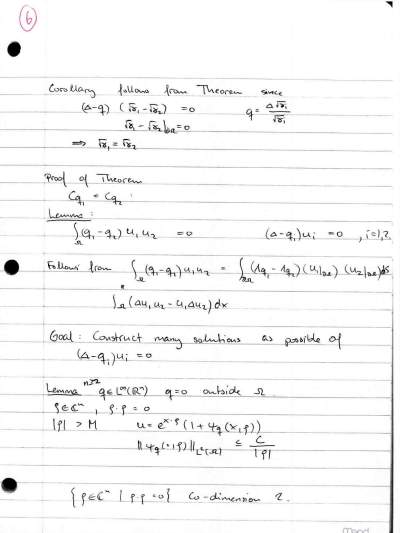 6
Corollary follows from Theorem since
(Δ-q) (√γ₁-√γ₂) = 0 q = Δ√γ₁/√γ₁
√γ₁-√γ₂|∂Ω = 0
⟹ √γ₁ = √γ₂
Proof of Theorem
Cq₁ = Cq₂
Lemma:
∫Ω (q₁-q₂) u₁u₂ = 0 (Δ-qᵢ)uᵢ = 0, i=1,2
Follows from ∫Ω (q₁-q₂)u₁u₂ = ∫∂Ω (Λq₁-Λq₂)(u₁|∂Ω)(u₂|∂Ω)dS
∫Ω (Δu₁u₂-u₁Δu₂)dx
Goal: Construct many solutions as possible of
(Δ-qᵢ)uᵢ = 0
Lemma n≥2 q∈L∞(ℝⁿ) q=0 outside Ω
ρ∈ℂⁿ, ρ·ρ = 0
|ρ| > M u = e^{x·ρ}(1+ψq(x,ρ))
||ψq(·,ρ)||L²(Ω) ≤ C/|ρ|
{ρ∈ℂⁿ | ρ·ρ=0} Co-dimension 2.